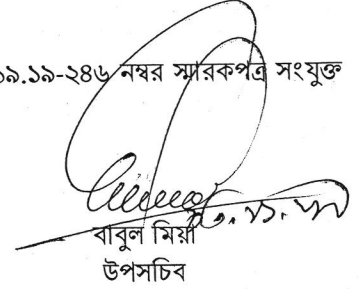 ১৯.১৯-২৪৬ নম্বর স্মারকপত্র সংযুক্ত
বাবুল মিয়া
উপসচিব